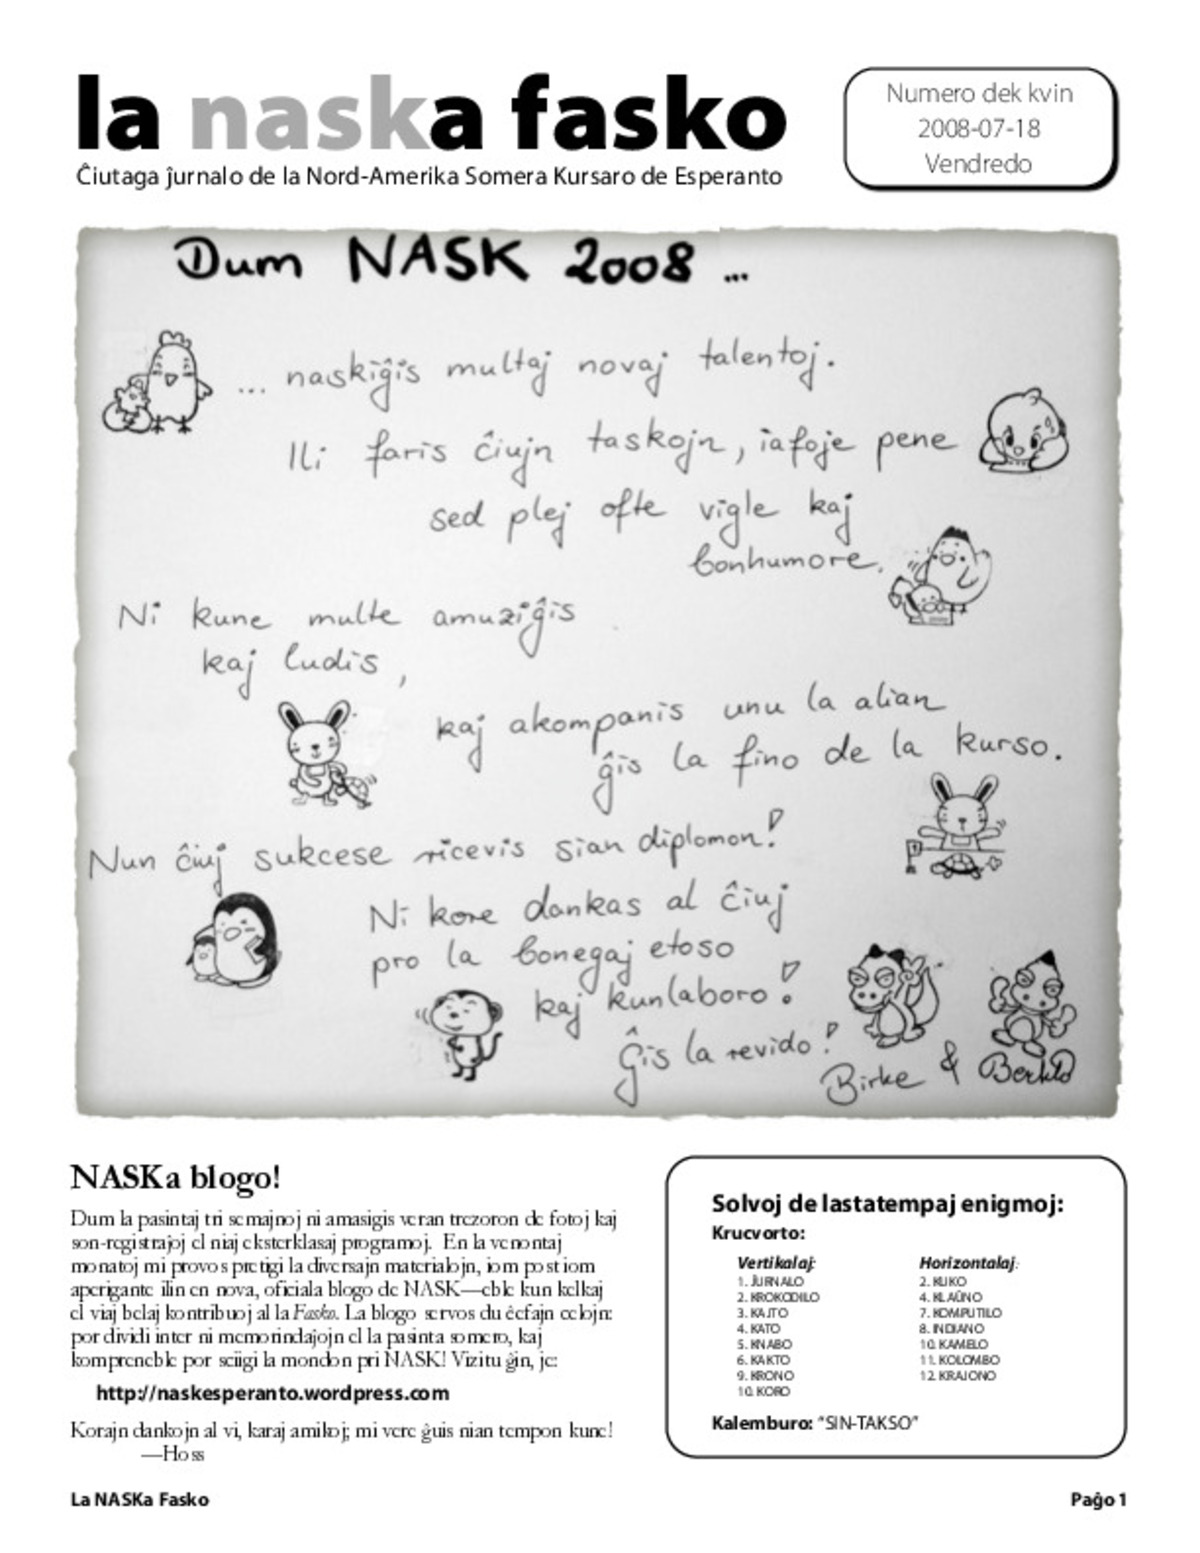 la naska fasko
Ĉiutaga ĵurnalo de la Nord-Amerika Somera Kursaro de Esperanto
Numero dek kvin
2008-07-18
Vendredo
Dum NASK 2008 ...
... naskiĝis multaj novaj talentoj.
Ili faris ĉiujn taskojn, iafoje pene
sed plej ofte vigle kaj
bonhumore.
Ni kune multe amuziĝis
kaj ludis,
kaj akompanis unu la alian
ĝis la fino de la kurso.
Nun ĉiuj sukcese ricevis sian diplomon!
Ni kore dankas al ĉiuj
pro la bonegaj etoso
kaj kunlaboro!
Ĝis la revido!
Birke &
NASKa blogo!
Dum la pasintaj tri semajnoj ni amasigis veran trezoron de fotoj kaj
son-registraĵoj el niaj eksterklasaj programoj. En la venontaj
monatoj mi provos pretigi la diversajn materialojn, iom post iom
aperigante ilin en nova, oficiala blogo de NASK—eble kun kelkaj
el viaj belaj kontribuoj al la Fasko. La blogo servos du ĉefajn celojn:
por dividi inter ni memorindaĵojn el la pasinta somero, kaj
kompreneble por sciigi la mondon pri NASK! Vizitu ĝin, je:
http://naskesperanto.wordpress.com
Korajn dankojn al vi, karaj amikoj; mi vere ĝuis nian tempon kune!
—Hoss
Solvoj de lastatempaj enigmoj:
Krucvorto:
Vertikalaj:
1. ĴURNALO
2. KROKODILO
3. KAJTO
4. KATO
5. KNABO
6. KAKTO
9. KRONO
10. KORO
Horizontalaj:
2. KUKO
4. KLAŬNO
7. KOMPUTILO
8. INDIANO
10. KAMELO
11. KOLOMBO
12. KRAJONO
Kalemburo: “SIN-TAKSO”
La NASKa Fasko
Paĝo 1